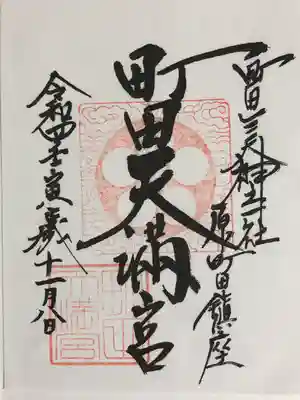 町田三天神之一社
原町田鎮座
町田天満宮
令和四壬寅歳十一月八日